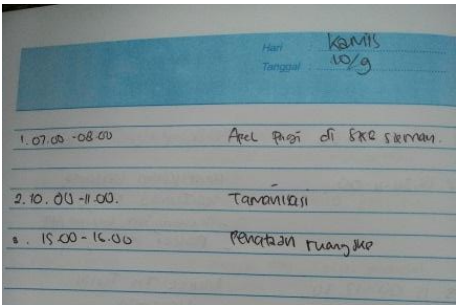 Hari : Kamis
Tanggal : 10/9
1. 07.00 - 08.00 Apel Pagi di SKB Sleman.
2. 10.00 - 11.00. Tamanisasi
3. 15.00 - 16.00 Penataan ruang